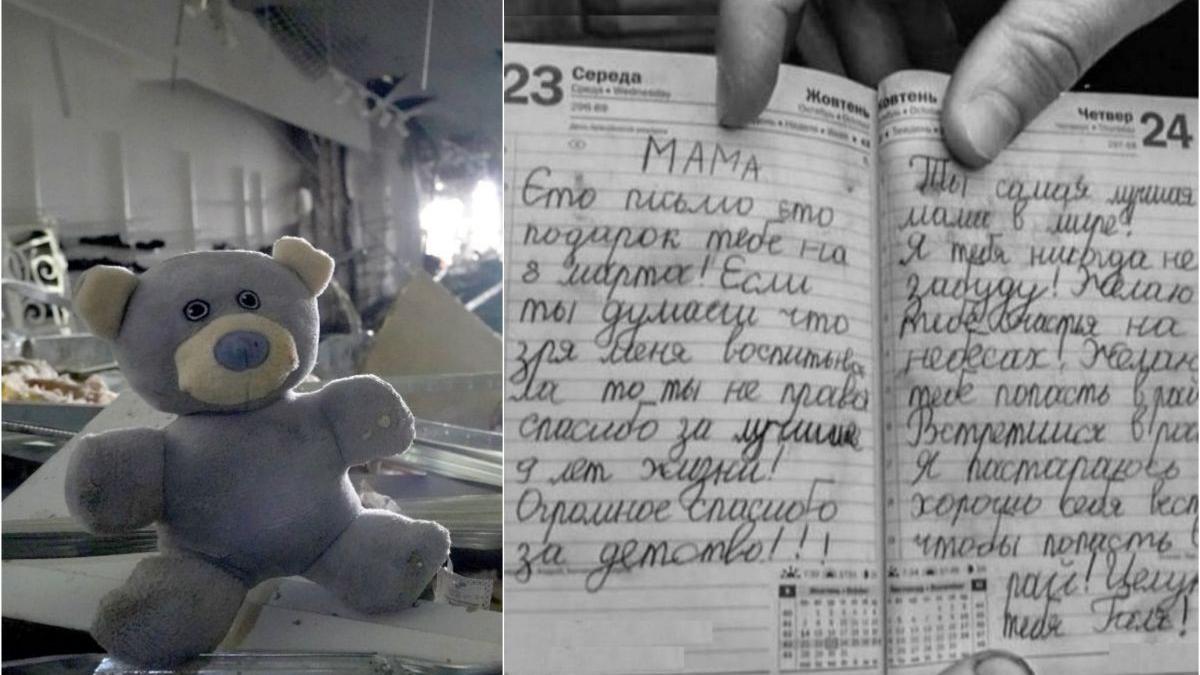 23 Середа
Среда • Wednesday
296-69
Жовтень
МАМА
Єто письмо это
подарок тебе на
8 марта! Если
ты думаеш что
зря меня воспитыва
ла то ты не права
спасибо за лучшие
9 лет жизни!
Огромное спасибо
за детство!!!
Четвер 24
Четверг • Thursday
297-68
овтень
Ты самая лучшая
мама в мире!
Я тебя никогда не
забуду! Желаю
тебе счастья на
небесах! Желаю
тебе попасть в рай
Встретимся в ра
Я пастараюсь
хорошо себя вест
чтобы попасть
рай! Целую
тебя Галя!